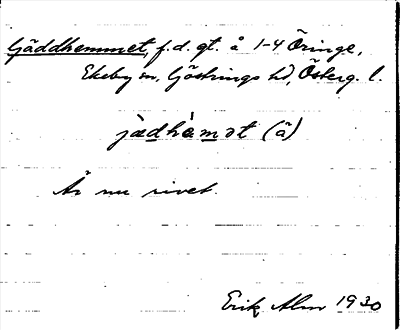 Gäddhemmet, f.d. gt. å 1-4 Öringe,
Ekeby sn, Göstrings hd, Österg. l.
jädhèmət (ä)
Är nu rivet.
Erik Alm 1930